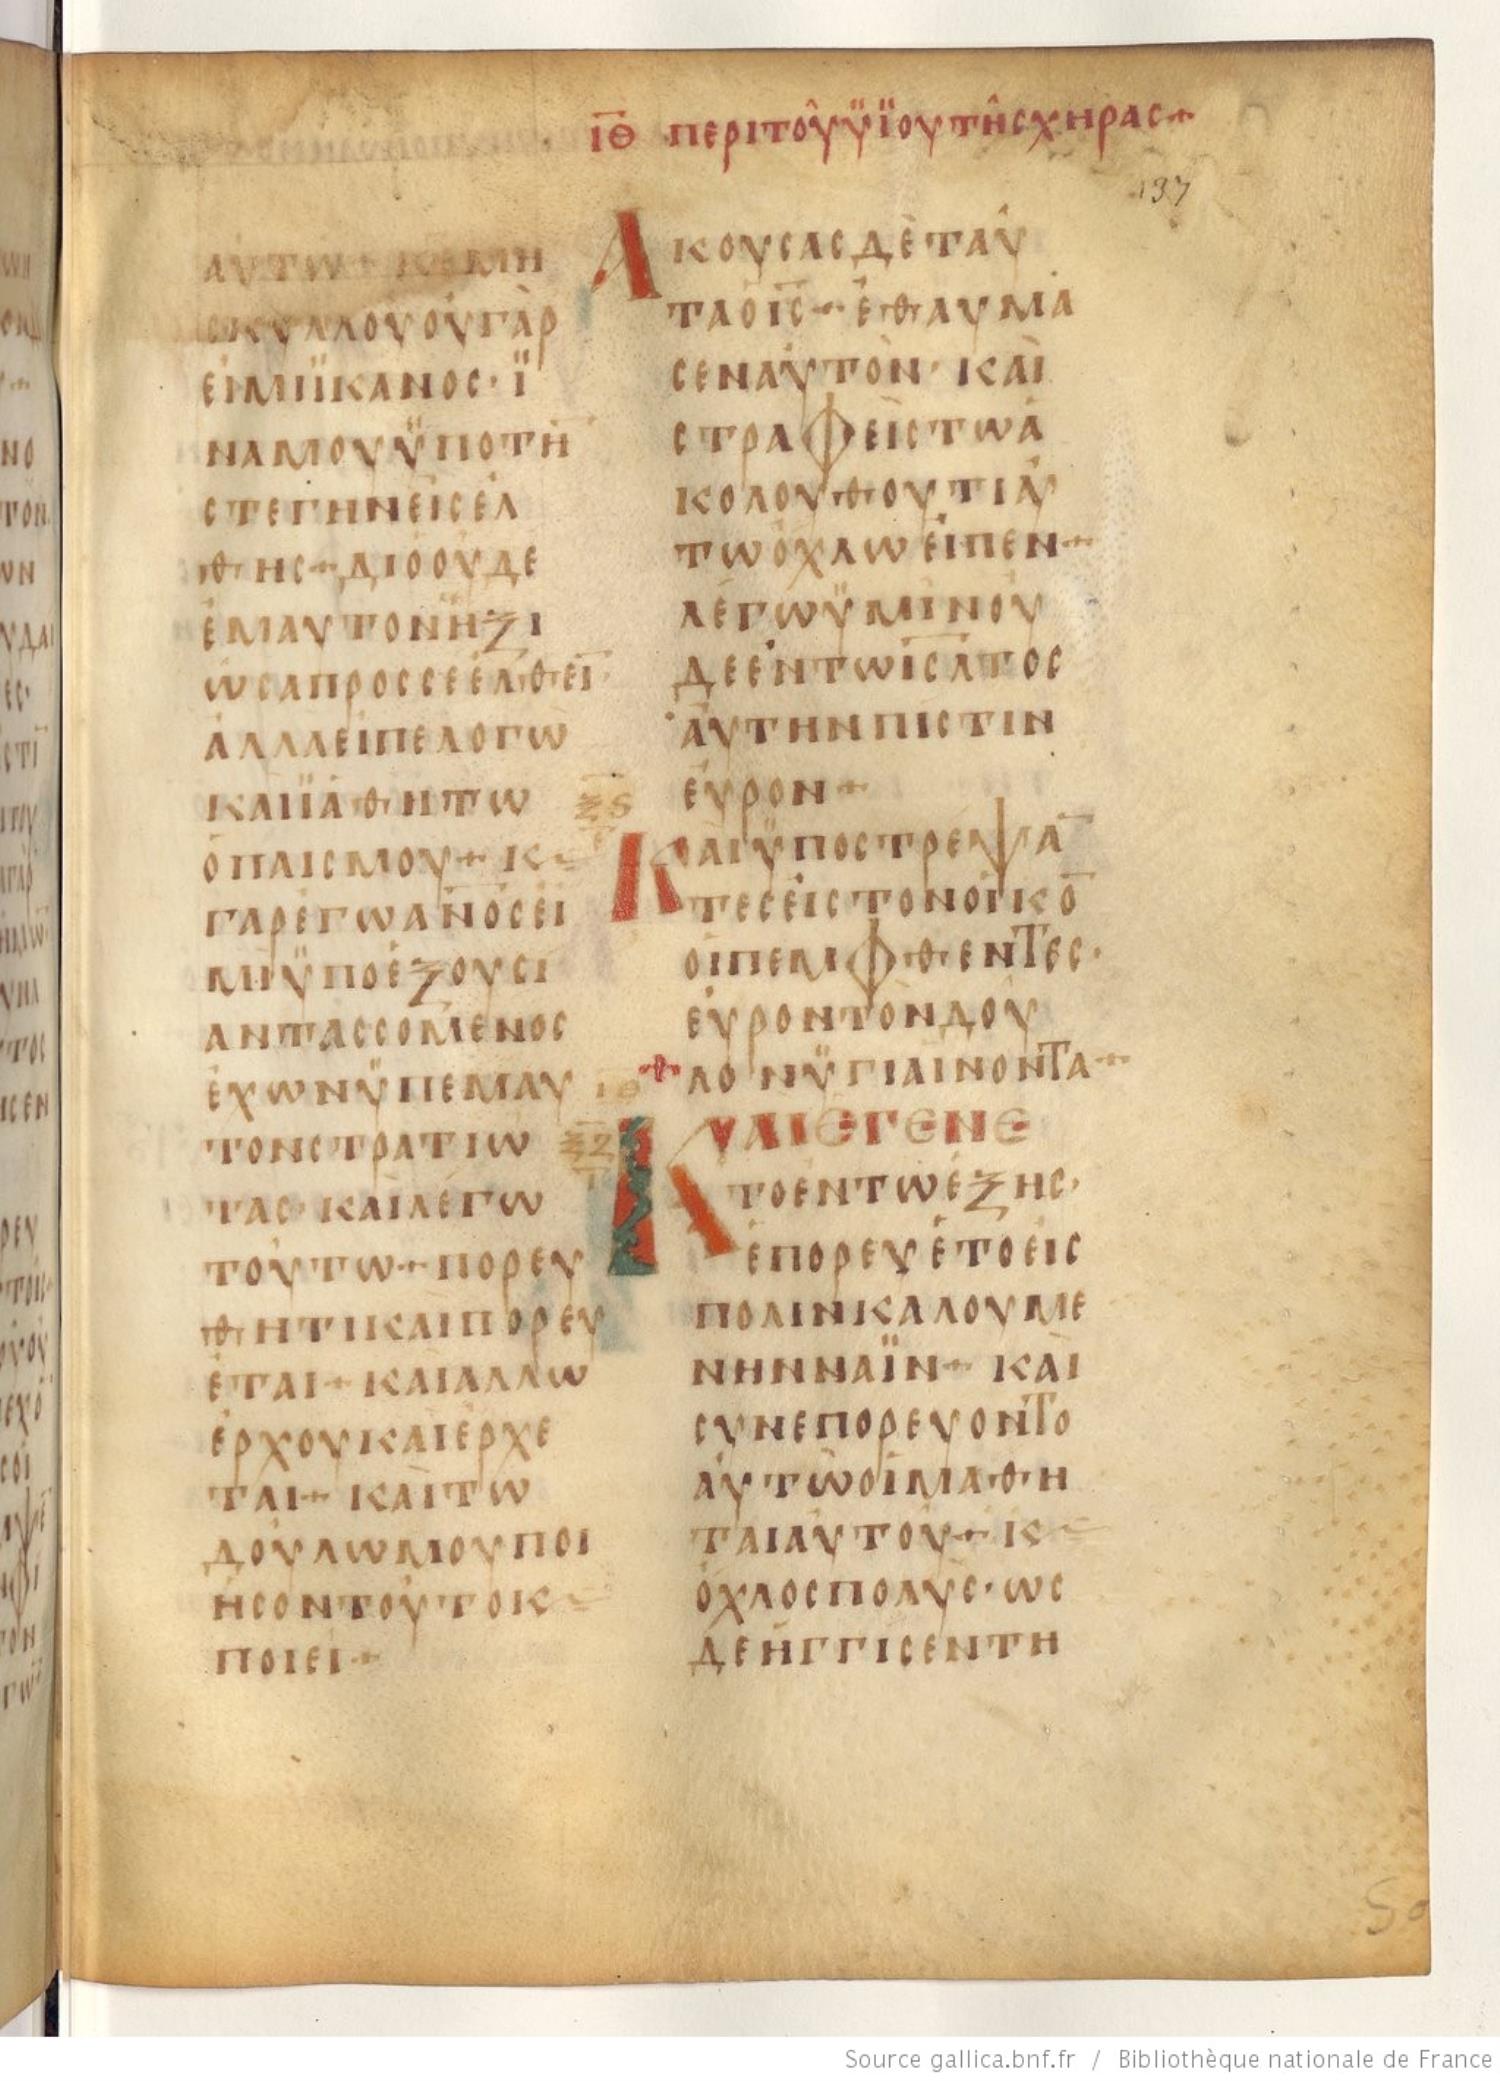 ΙΘ ΠΕΡΙΤΟΥΫΪΟΥΤΗΣΧΗΡΑΣ+
137
ΑΥΤΩ+ ΚΕΜΗ
ΣΚΥΛΛΟΥΟΥΓΑΡ
ΕΙΜΙΪΚΑΝΟΣ· Ϊ
ΝΑΜΟΥΫΠΟΤΗ̅
ΣΤΕΓΗΝΕΙΣΕΛ
ΘΗΣ+ΔΙΟΟΥΔΕ
ΕΜΑΥΤΟΝΗΞΙ
ΩΣΑΠΡΟΣΣΕΕΛΘΕΙ̅·
ΑΛΛΑΕΙΠΕΛΟΓΩ
ΚΑΙΪΑΘΗΤΩ
ΟΠΑΙΣΜΟΥ+ Κ
ΓΑΡΕΓΩΑΝ̅Ο̅Σ̅ΕΙ
ΜΙΫΠΟΕΞΟΥΣΙ
ΑΝΤΑΣΣΟΜΕΝΟΣ
ΕΧΩΝΫΠΕΜΑΥ
ΤΟΝΣΤΡΑΤΙΩ
ΤΑΣ· ΚΑΙΛΕΓΩ
ΤΟΥΤΩ+ΠΟΡΕΥ
ΘΗΤΙΚΑΙΠΟΡΕΥ
ΕΤΑΙ+ ΚΑΙΑΛΛΩ
ΕΡΧΟΥΚΑΙΕΡΧΕ
ΤΑΙ+ ΚΑΙΤΩ
ΔΟΥΛΩΜΟΥΠΟΙ
ΗΣΟΝΤΟΥΤΟΚ
ΠΟΙΕΙ+
ΑΚΟΥΣΑΣΔΕΤΑΥ
ΤΑΟΙ̅Σ̅+ ΕΘΑΥΜΑ
ΣΕΝΑΥΤΟΝ· ΚΑΙ
ΣΤΡΑΦΕΙΣΤΩΑ
ΚΟΛΟΥΘΟΥΤΙΑΥ
ΤΩΟΧΛΩΕΙΠΕΝ+
ΛΕΓΩΫΜΙΝΟΥ
ΔΕΕΝΤΩΙ̅Σ̅ΛΤΟΣ
ΑΥΤΗΝΠΙΣΤΙΝ
ΕΥΡΟΝ+
ΞϚ
ΚΑΙΫΠΟΣΤΡΕΨΑ̅
ΤΕΣΕΙΣΤΟΝΟΙΚΟ̅
ΟΙΠΕΜΦΘΕΝΤΕΣ·
ΕΥΡΟΝΤΟΝΔΟΥ
ΛΟΝΫΓΙΑΙΝΟΝΤΑ+
ΙΘ
ΞΖ
ΚΑΙΕΓΕΝΕ
ΤΟΕΝΤΩΕΞΗΣ·
ΕΠΟΡΕΥΕΤΟΕΙΣ
ΠΟΛΙΝΚΑΛΟΥΜΕ
ΝΗΝΝΑΪΝ+ ΚΑΙ
ΣΥΝΕΠΟΡΕΥΟΝΤΟ
ΑΥΤΩΟΙΜΑΘΗ
ΤΑΙΑΥΤΟΥ+ Κ
ΟΧΛΟΣΠΟΛΥΣ· ΩΣ
ΔΕΗΓΓΙΣΕΝΤΗ
Source gallica.bnf.fr / Bibliothèque nationale de France